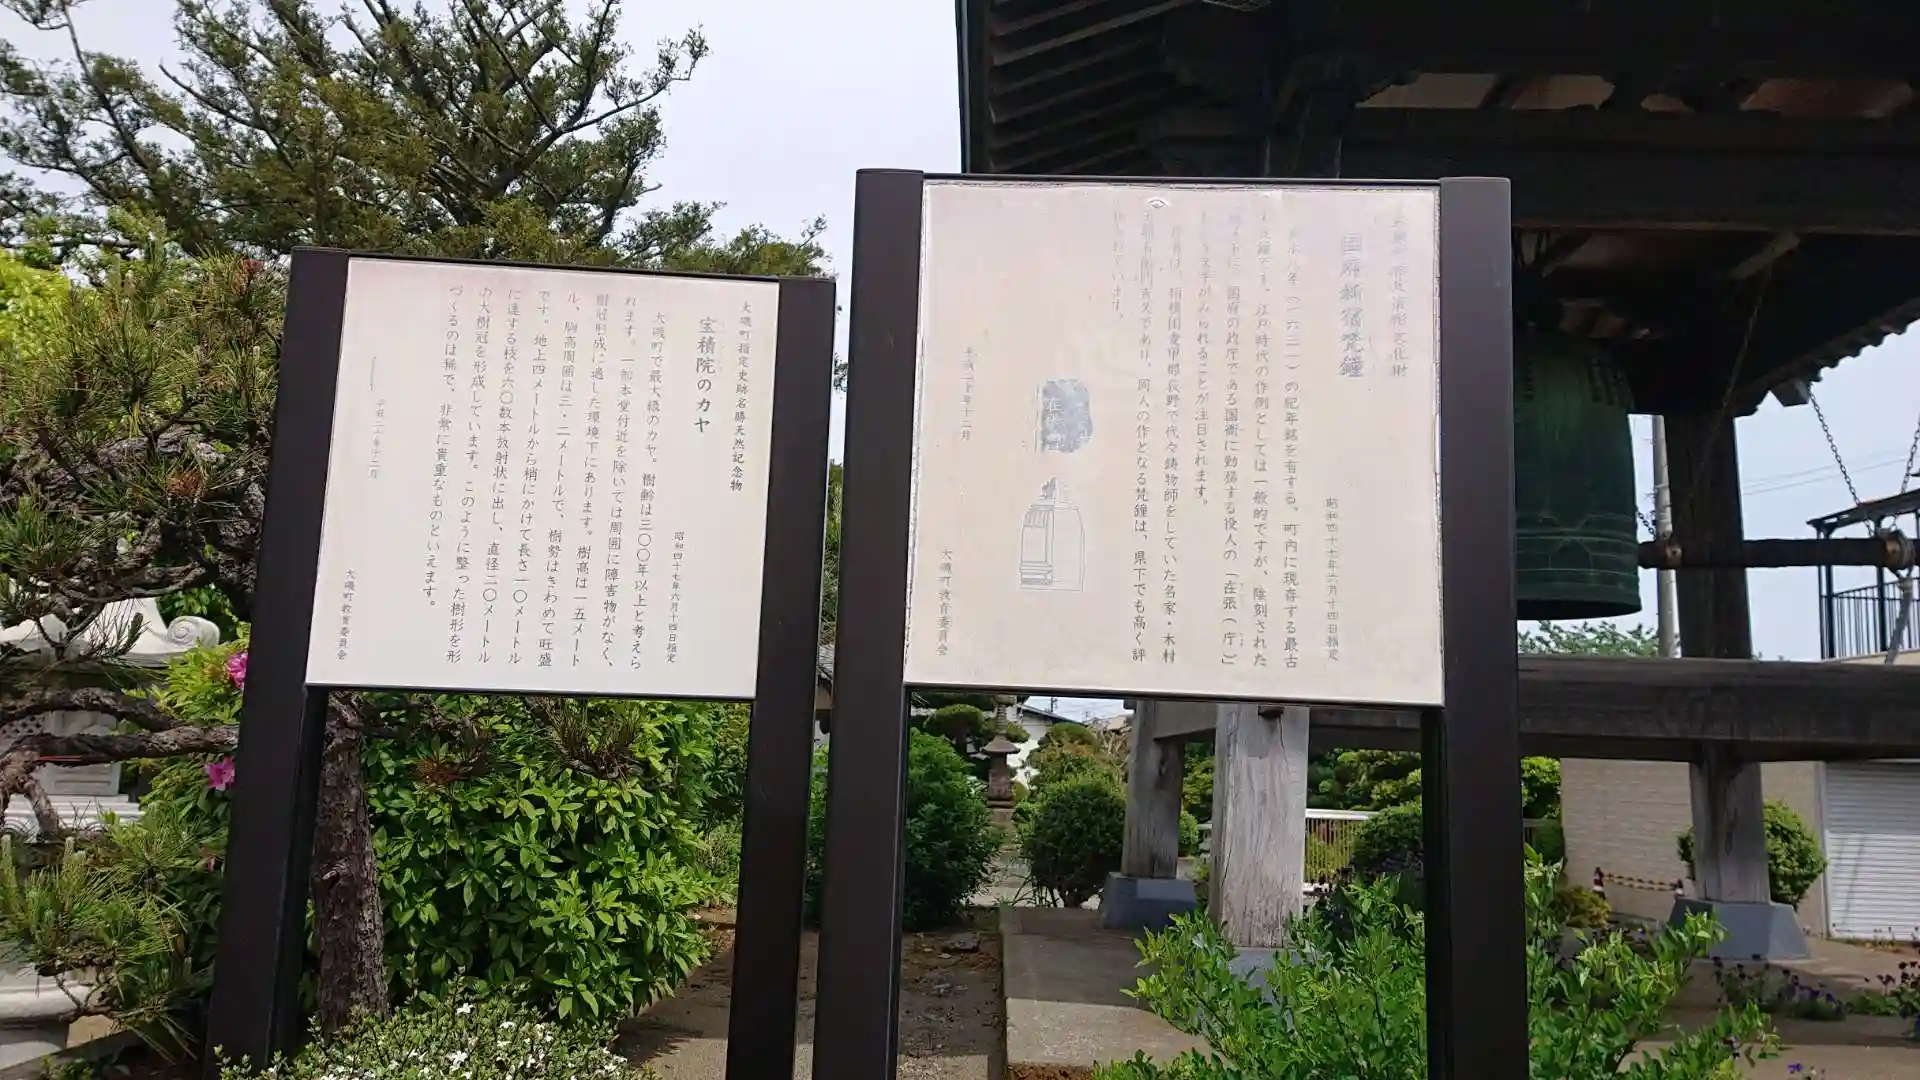 大磯町指定史跡名勝天然記念物
宝積院のカヤ
昭和四十七年六月十四日指定
大磯町で最大級のカヤ。樹齢は三〇〇年以上と考えら
れます。一部本堂付近を除いては周囲に障害物がなく、
樹冠形成に適した環境下にあります。樹高は一五メート
ル、胸高周囲は三・二メートルで、樹勢はきわめて旺盛
です。地上四メートルから梢にかけて長さ一〇メートル
に達する枝を六〇数本放射状に出し、直径二〇メートル
の大樹冠を形成しています。このように整った樹形を形
づくるのは稀で、非常に貴重なものといえます。
平成二十年十二月
大磯町教育委員会
有形文化財
国府新宿梵鐘
昭和四十七年六月十四日指定
八年(一六三一)の紀年銘を有する、町内に現存する最古
の梵鐘です。江戸時代の作例としては一般的ですが、陰刻された
国府の政庁である国衙に勤務する役人の「在張(庁)」
という文字がみられることが注目されます。
作者は、相模国愛甲郡荻野で代々鋳物師をしていた名家・木村
であり、同人の作となる梵鐘は、県下でも高く評
価されています。
平成二十年十二月
大磯町教育委員会